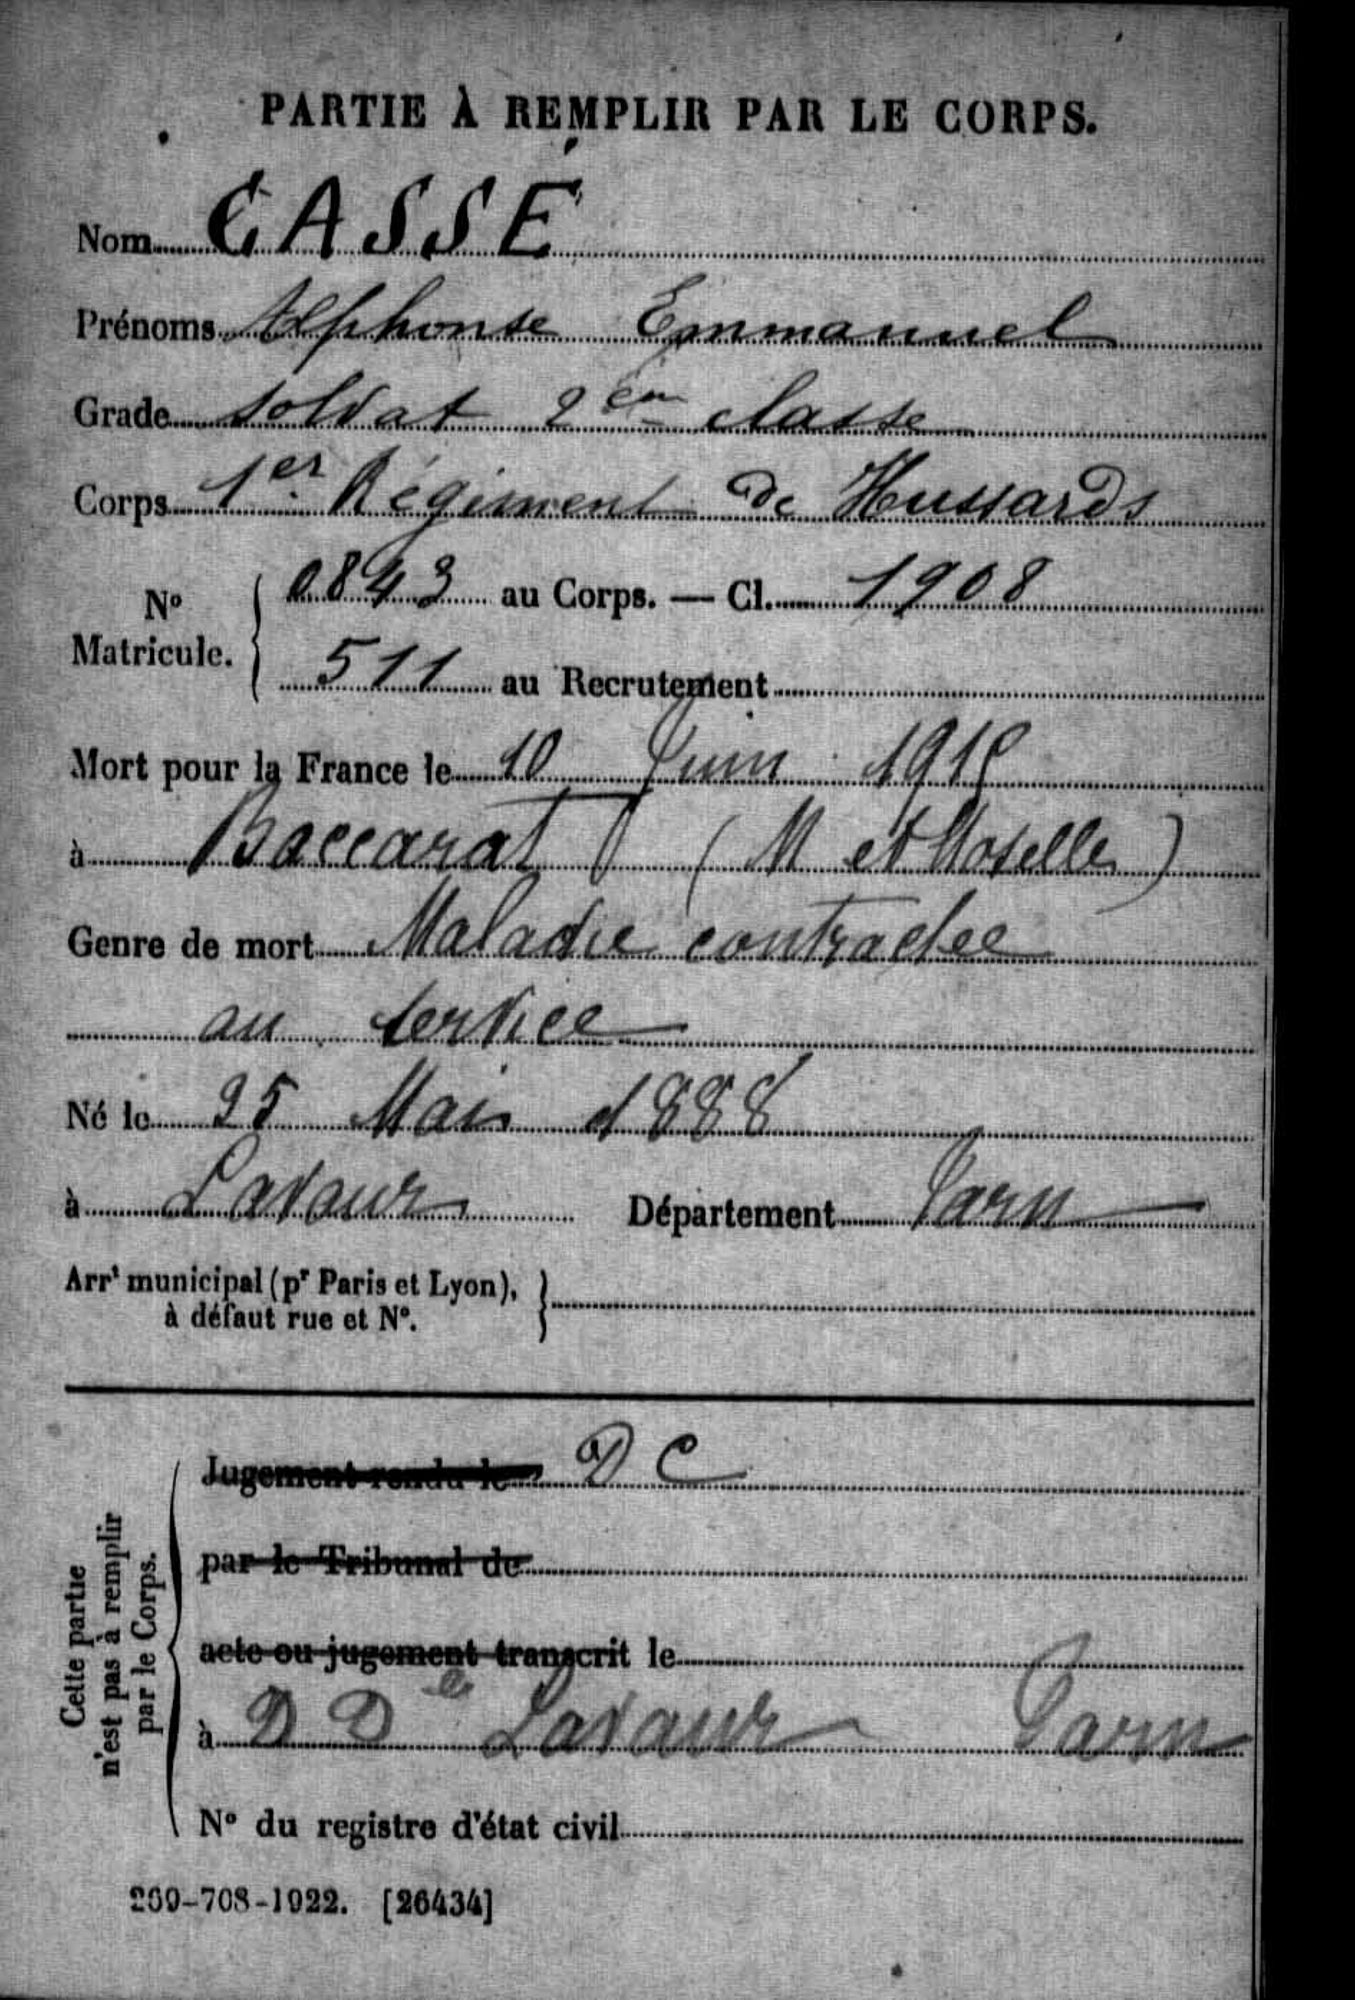 PARTIE À REMPLIR PAR LE CORPS.
Nom CASSÉ
Prénoms Alphonse Emmanuel
Grade soldat 2em classe
Corps 1er Régiment de Hussards
N° Matricule. 0843 au Corps. — Cl. 1908
511 au Recrutement
Mort pour la France le 10 Juin
à Baccarat (M et Moselle)
Genre de mort Maladie contractée
au service
Né le 25 Mai 1888
à Lavaur Département Tarn
Arrt municipal (pr Paris et Lyon),
à défaut rue et N°.
Cette partie
n'est pas à remplir
par le Corps.
Jugement rendu le D C
par le Tribunal de
acte ou jugement transcrit le
à D De Lavaur Tarn
N° du registre d'état civil
269-708-1922. [26434]